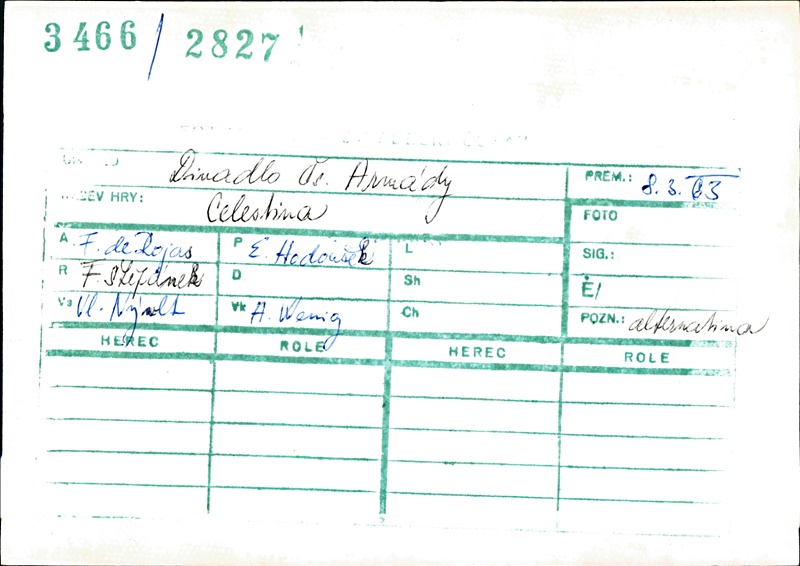 3466 / 2827
Divadlo Čs. Armády
PREM.: 8. 3. 63
HRY: Celestina
FOTO
A F. de Rojas P E. Hodoušek L
SIG.:
R F. Štěpánek D Sh
Č/
Vs Vl. Nývlt Vk A. Wenig Ch
POZN.: alternativa
HEREC ROLE HEREC ROLE